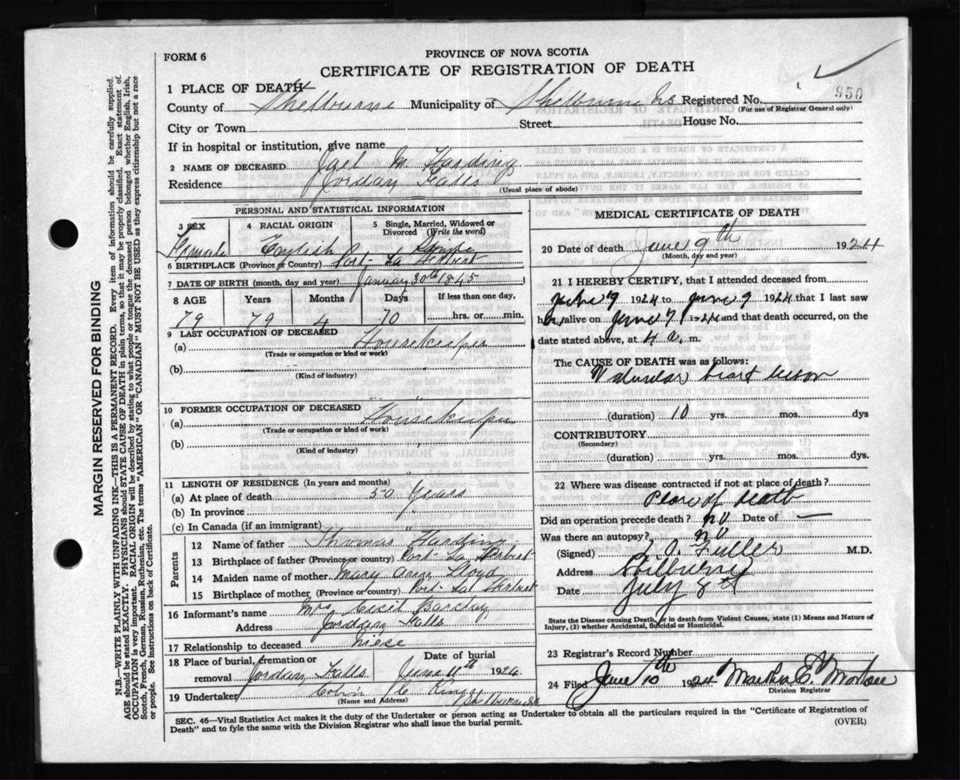 FORM 6
PROVINCE OF NOVA SCOTIA
CERTIFICATE OF REGISTRATION OF DEATH
1 PLACE OF DEATH
County of Shelburne Municipality of Shelburne NS Registered No. 950
(For use of Registrar General only)
City or Town Street House No.
If in hospital or institution, give name
2 NAME OF DECEASED Jael M Harding
Residence Jordan Falls
(Usual place of abode)
PERSONAL AND STATISTICAL INFORMATION
3 SEX 4 RACIAL ORIGIN 5 Single, Married, Widowed or Divorced (Write the word)
Female English Single
6 BIRTHPLACE (Province or Country) Port La Herbert
7 DATE OF BIRTH (month, day and year) January 30th 1845
8 AGE Years Months Days If less than one day,
79 79 4 10 hrs. or min.
9 LAST OCCUPATION OF DECEASED
(a) Housekeeper
(Trade or occupation or kind of work)
(b)
(Kind of industry)
10 FORMER OCCUPATION OF DECEASED
(a) Housekeeper
(Trade or occupation or kind of work)
(b)
(Kind of industry)
11 LENGTH OF RESIDENCE (In years and months)
(a) At place of death 50 Years
(b) In province
(c) In Canada (if an immigrant)
Parents
12 Name of father Thomas Harding
13 Birthplace of father (Province or country) Port La Herbert
14 Maiden name of mother Mary Lloyd
15 Birthplace of mother (Province or country) Port La Herbert
16 Informant's name Mrs Cecil Barclay
Address Jordan Falls
17 Relationship to deceased niese
18 Place of burial, cremation or removal Jordan Falls Date of burial June 11th 1924
19 Undertaker Colin
(Name and Address)
MEDICAL CERTIFICATE OF DEATH
20 Date of death June 9th 1924
(Month, day and year)
21 I HEREBY CERTIFY, that I attended deceased from
June 7 1924 to June 9 1924 that I last saw
her alive on June 7 1924 and that death occurred, on the
date stated above, at 4 a. m.
The CAUSE OF DEATH was as follows:
Valvular heart lesion
(duration) 10 yrs. mos. dys
CONTRIBUTORY
(Secondary)
(duration) yrs. mos. dys.
22 Where was disease contracted if not at place of death?
Place of death
Did an operation precede death? no Date of —
Was there an autopsy? no
(Signed) Fuller M.D.
Address Shelburne
Date July 8th
State the Disease causing Death, or in death from Violent Causes, state (1) Means and Nature of Injury, (2) whether Accidental, Suicidal or Homicidal.
23 Registrar's Record Number
24 Filed June 10th 1924 Martha E Morton
Division Registrar
SEC. 46—Vital Statistics Act makes it the duty of the Undertaker or person acting as Undertaker to obtain all the particulars required in the "Certificate of Registration of
Death" and to fyle the same with the Division Registrar who shall issue the burial permit.
(OVER)
MARGIN RESERVED FOR BINDING
N.B.—WRITE PLAINLY WITH UNFADING INK—THIS IS A PERMANENT RECORD. Every item of information should be carefully supplied.
AGE should be stated EXACTLY. PHYSICIANS should STATE CAUSE OF DEATH in plain terms, so that it may be properly classified. Exact statement of
OCCUPATION is very important. RACIAL ORIGIN will be described by stating to what people or tongue the deceased person belonged whether English, Irish,
Scotch, French, German, Russian, Ruthenian, etc. The terms "AMERICAN" OR "CANADIAN" MUST NOT BE USED as they express citizenship but not a race
or people. See instructions on back of Certificate.